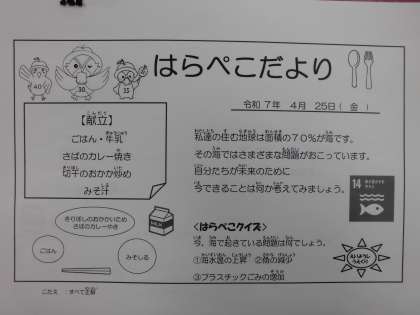 はらぺこだより
40 30 35
令和 7年 4月 25日( 金 )
【献立】
ごはん・牛乳
さばのカレー焼き
切干のおかか炒め
みそ汁
私達の住む地球は面積の７０％が海です。
その海ではさまざまな問題がおこっています。
自分たちが未来のために
今できることは何か考えてみましょう。
14
きりぼしのおかかいため
さばのカレーやき
ごはん
みそしる
＜はらぺこクイズ＞
今、海で起きている問題は何でしょう。
①海水温の上昇 ②魚の減少
③プラスチックごみの増加
こたえ：すべて正解